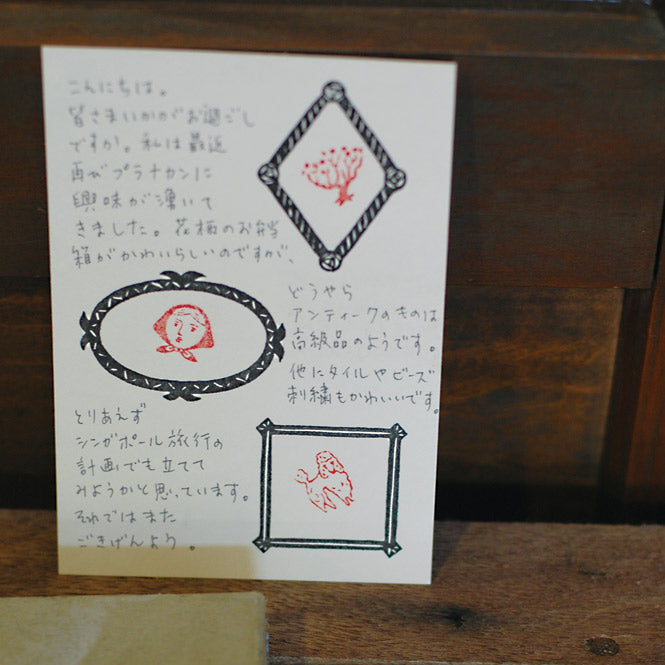 こんにちは。
皆さまいかがお過ごし
ですか。私は最近
再びプラナカンに
興味が湧いて
きました。花柄のお弁当
箱がかわいらしいのですが、
どうやら
アンティークのものは
高級品のようです。
他にタイルやビーズ
刺繍もかわいいです。
とりあえず
シンガポール旅行の
計画でも立てて
みようかと思っています。
それではまた
ごきげんよう。